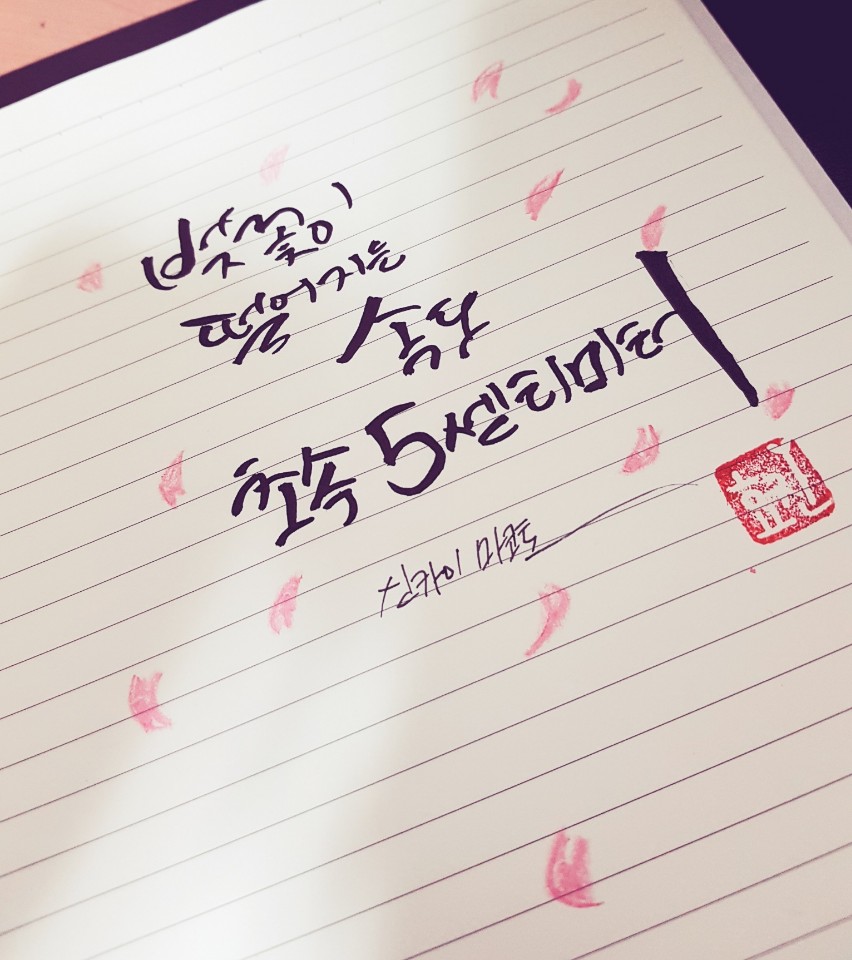 벚꽃이
떨어지는
속도
초속 5센티미터
신카이 마코토